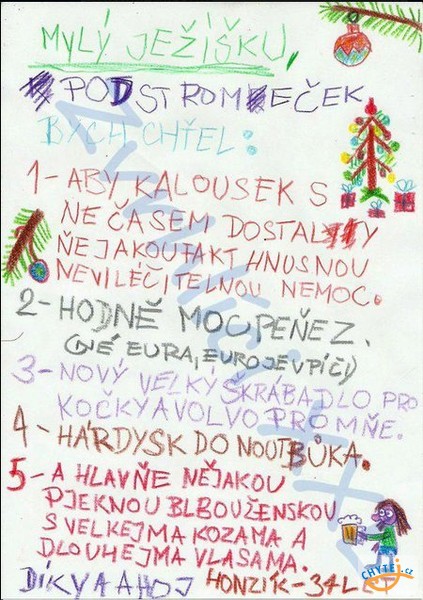 MYLÝ JEŽÍŠKU,
POD STROMEČEK
BYCH CHŤEL:
1- ABY KALOUSEK S
NEČASEM DOSTALY
ŇEJAKOU FAKT HNUSNOU
NEVILÉČITELNOU NEMOC.
2- HODNĚ MOC PEŇEZ.
(NÉ EURA, EURO JE V PÍČI)
3- NOVÝ VELKÝ ŠKRÁBADLO PRO
KOČKY A VOLVO PRO MŇE.
4- HÁRDYSK DO NOUTBŮKA.
5- A HLAVŇE NĚJAKOU
PJEKNOU BLBOU ŽENSKOU
S VELKEJMA KOZAMA A
DLOUHEJMA VLASAMA.
DÍKY A AHOJ HONZÍK-34L
CHYTEJ.cz